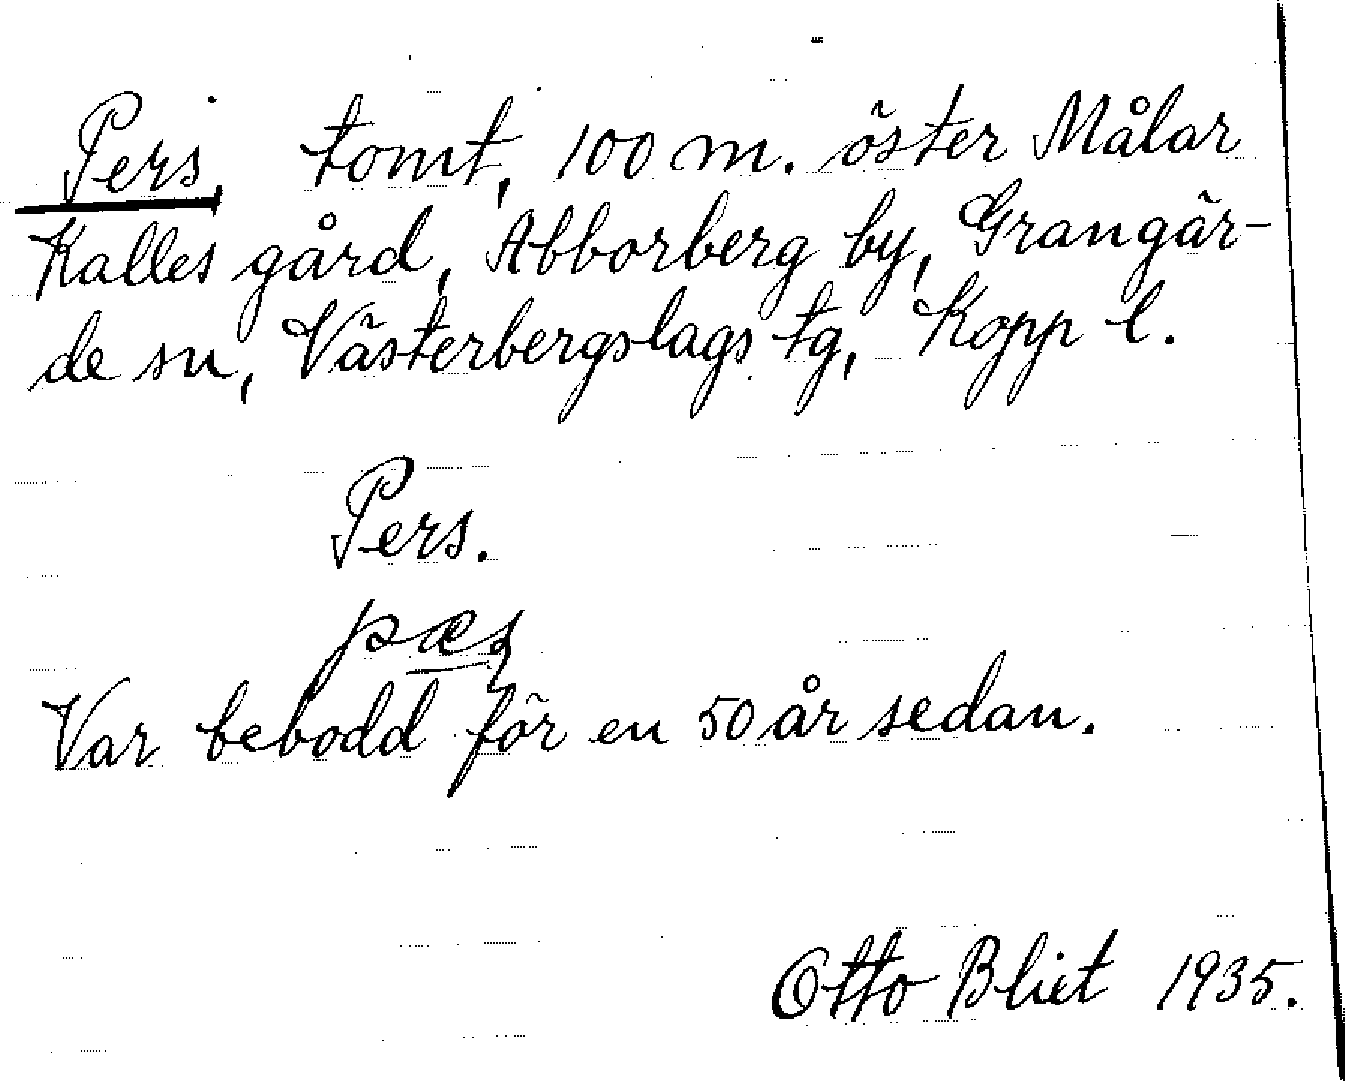 Pers, tomt, 100 m. öster Målar
Kalles gård, Abborberg by, Grangär-
de sn, Västerbergslags tg, Kopp l.
Pers.
pæs
Var bebodd för en 50 år sedan.
Otto Bliet 1935.